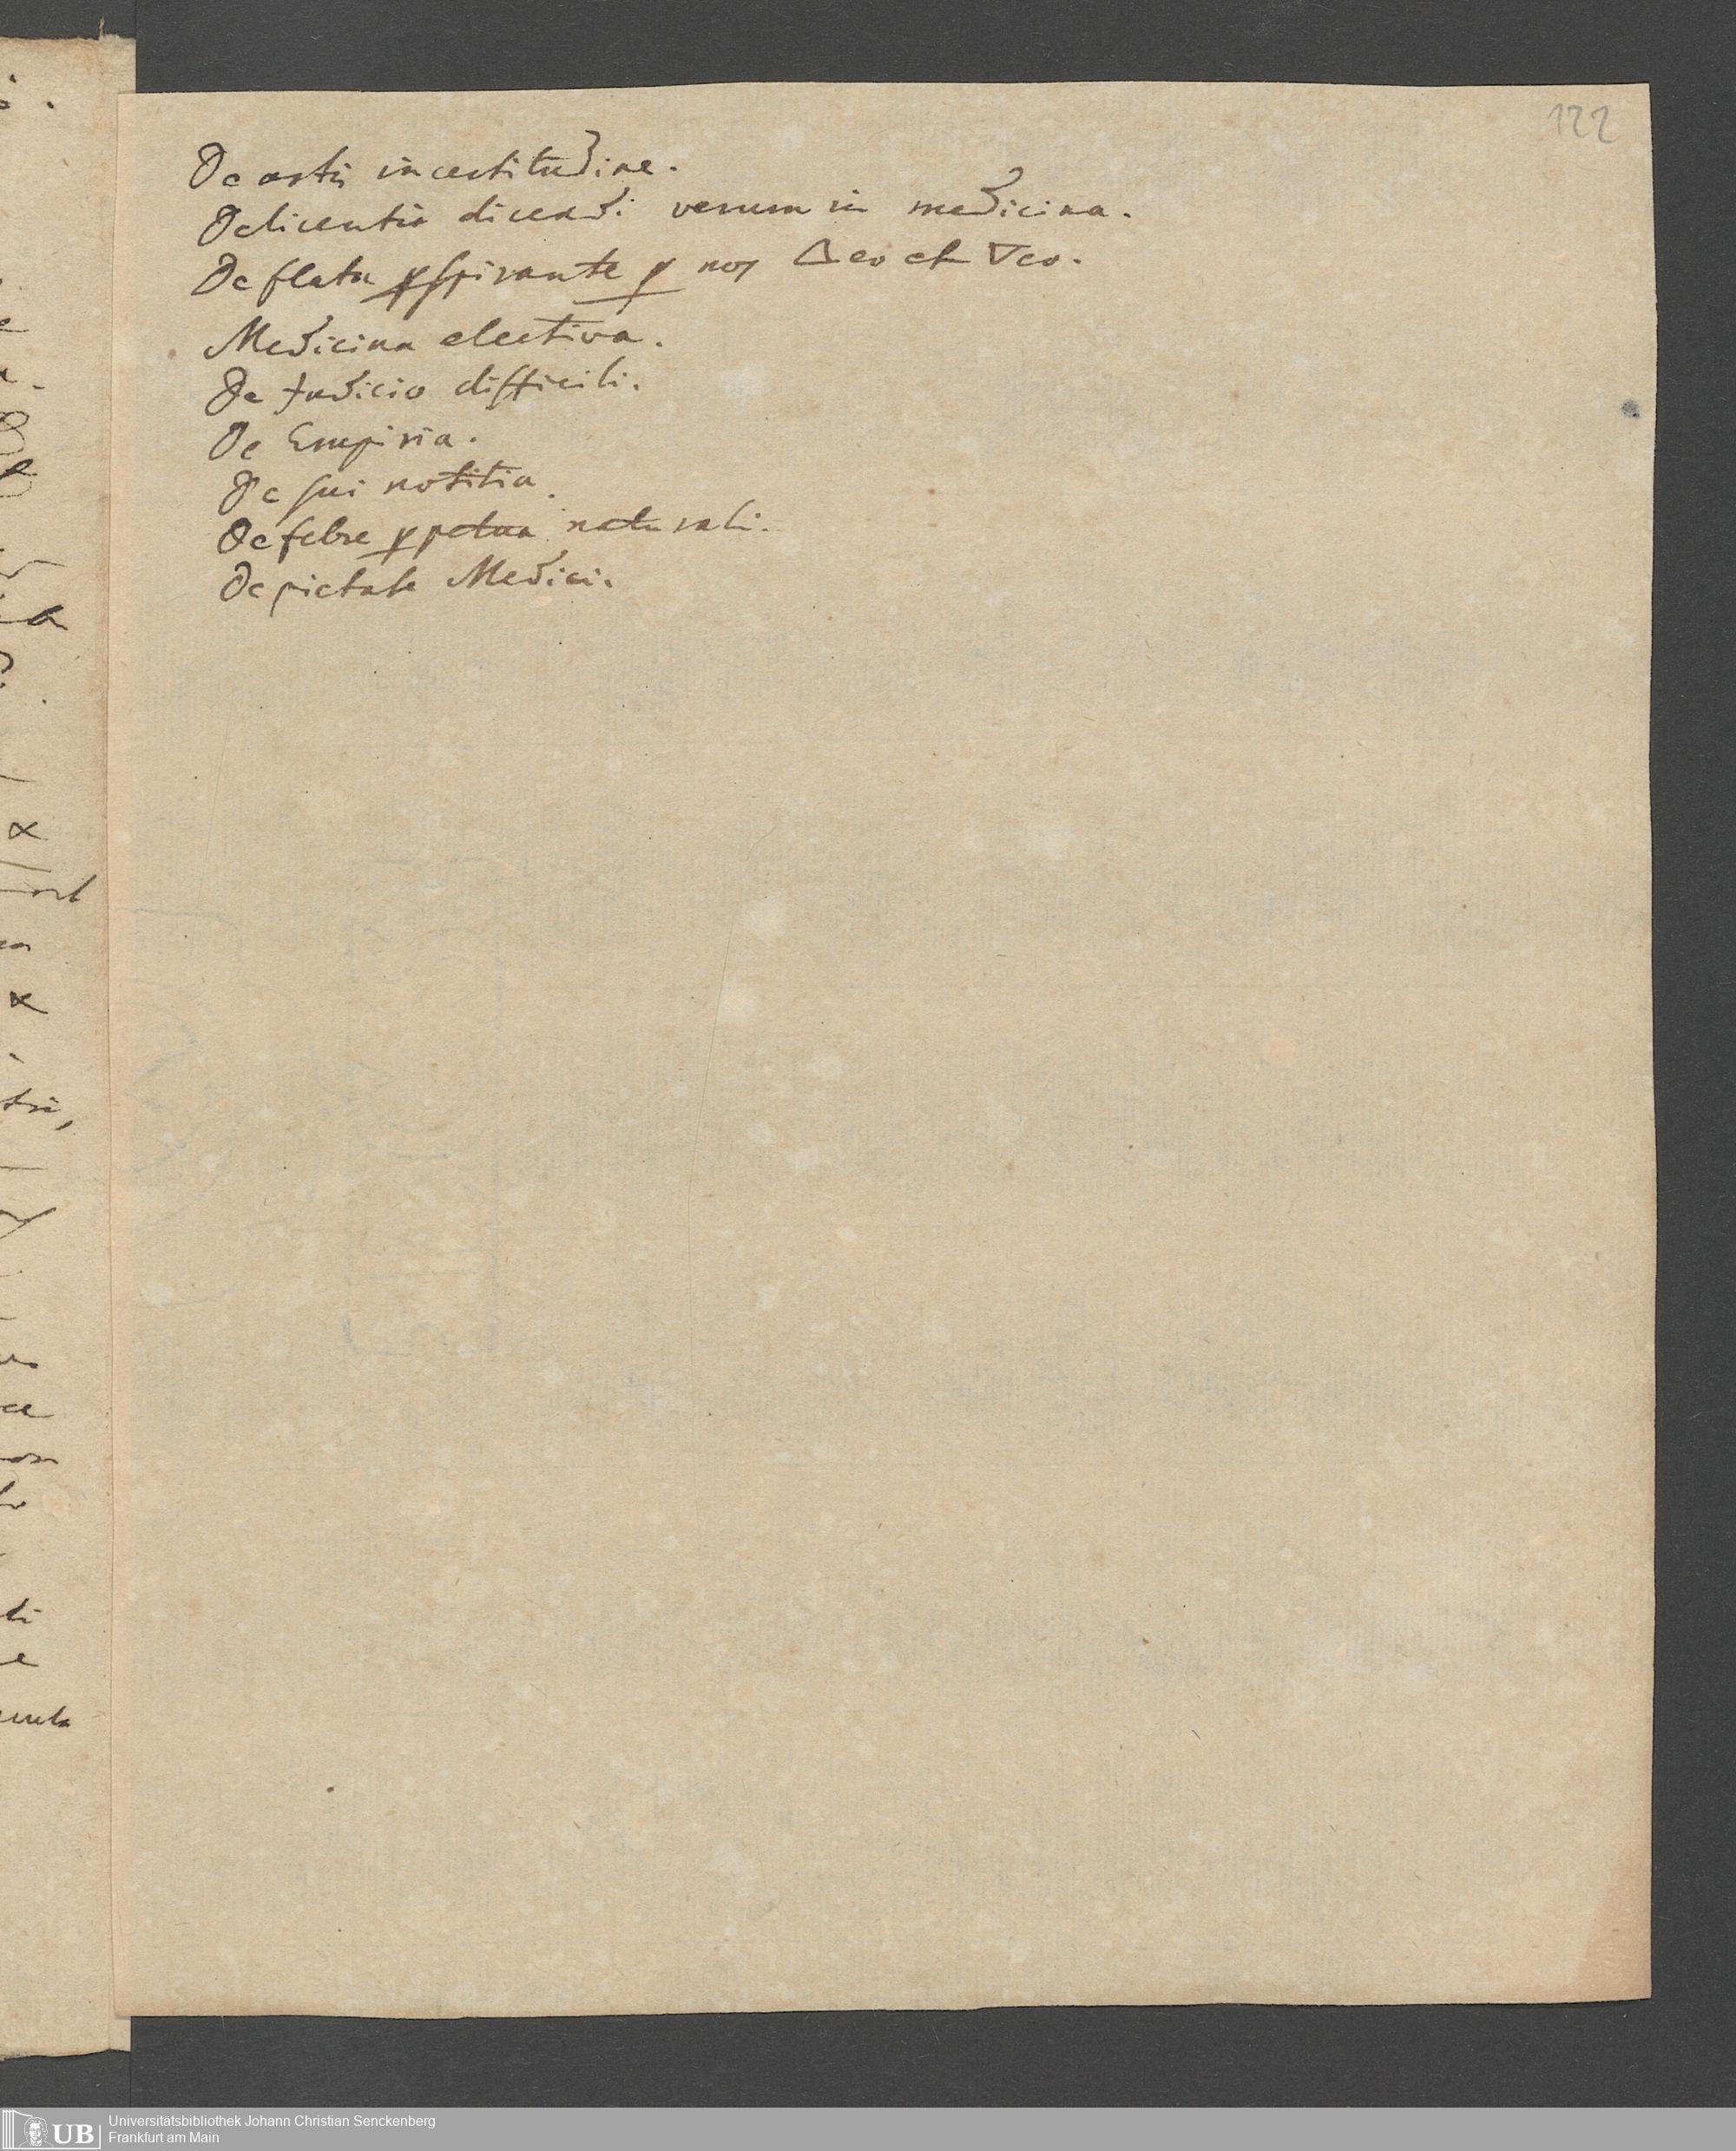 122
De artis incertitudine.
De licentia dicendi verum in medicina.
De flatu pspirante p nos △eo et ▽eo.
Medicina electiva.
De Judicio difficili.
De Empiria.
De sui notitia.
De febre ppetua naturali.
De pietate Medici.
UB Universitätsbibliothek Johann Christian Senckenberg
Frankfurt am Main